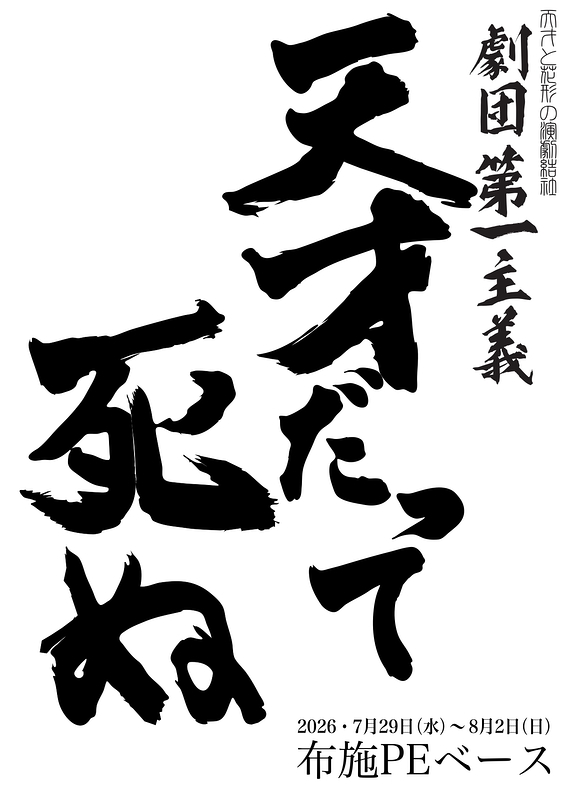 天才と花形の演劇結社
劇団 第一主義
天才だって
死ぬ
2026・7月29日(水)～8月2日(日)
布施PEベース